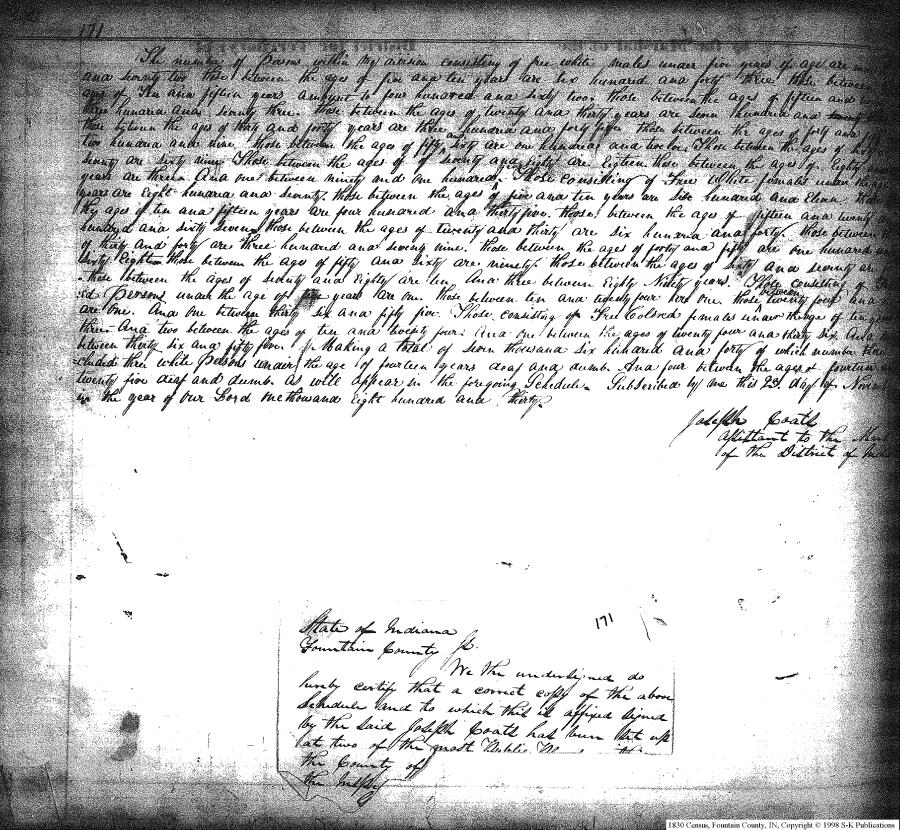 171
The number of Persons within my division consisting of free white males under five years of age are
and seventy two those between the ages of five and ten years are six hundred and forty three those between
ages of Ten and fifteen years amount to four hundred and sixty two. those between the ages of fifteen and
three hundred and seventy three. those between the ages of twenty and thirty years are seven hundred and
those between the ages of thirty and forty years are three hundred and forty five those between the ages of forty and
two hundred and nine, those between the ages of fifty and sixty are one hundred and twelve. Those between the ages of
seventy are sixty nine Those between the ages of of seventy and eighty are Eighteen those between the ages of Eighty
years are three. And one between ninety and one hundred. Those consisting of Free White females under
years are Eight hundred and seventy, those between the ages of five and ten years are six hundred and Eleven
the ages of ten and fifteen years are four hundred and thirty five. those between the ages of fifteen and twenty
hundred and sixty seven those between the ages of twenty and thirty are six hundred and forty. those between
of thirty and forty are three hundred and seventy nine. those between the ages of forty and fifty are one hundred
sixty Eight those between the ages of fifty and sixty are ninety. those between the ages of sixty and seventy are
those between the ages of seventy and Eighty are ten And three between Eighty Ninty years. Those consisting of
Persons under the age of years are one. those between ten and twenty four are one, those between twenty four and
are one. And one between thirty six and fifty five. Those consisting of Free Colored females under the age of ten
three And two between the ages of ten and twenty four. And one between the ages of twenty four and thirty six And
between thirty six and fifty five. Making a total of seven thousand six hundred and forty of which number
cluded three white Persons under the age of fourteen years deaf and dumb. And four between the ages of fourteen
twenty five deaf and dumb as will appear in the forgoing Schedule. Subscribed by me this 22d day of
in the year of our Lord one thousand Eight hundred and thirty.
Joseph Coats
Assistant to the
of the District of
171
State of Indiana
Fountain County
We the undersigned do
hereby certify that a correct copy of the above
schedule and to which this is affixed signed
by the said Joseph Coats has been set up
at two of the most Public
the County of
the
1830 Census, Fountain County, IN, Copyright © 1998 S-K Publications